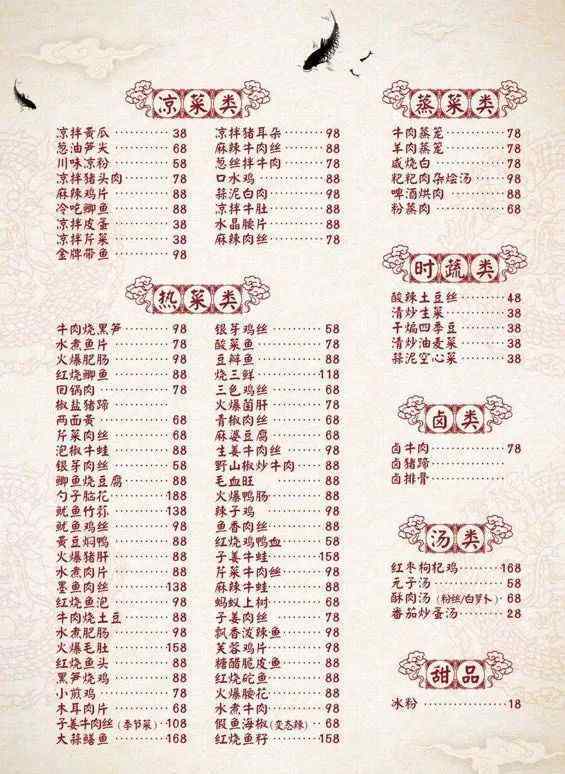 凉菜类
凉拌黄瓜 38
葱油笋尖 68
川味凉粉 58
凉拌猪头肉 78
麻辣鸡片 88
冷吃鲫鱼 88
凉拌皮蛋 38
凉拌芹菜 38
金牌带鱼 98
凉拌猪耳朵 98
麻辣牛肉丝 88
葱丝拌牛肉 78
口水鸡 88
蒜泥白肉 98
凉拌牛肚 88
水晶腰片 88
麻辣肉丝 78
热菜类
牛肉烧黑笋 98
水煮鱼片 78
火爆肥肠 98
红烧鲫鱼 88
回锅肉 78
椒盐猪蹄
两面黄 68
芹菜肉丝 68
泡椒牛蛙 88
银芽肉丝 58
鲫鱼烧豆腐 88
勺子脑花 188
鱿鱼竹荪 138
鱿鱼鸡丝 98
黄豆焖鸭 88
火爆猪肝 88
水煮肉片 88
墨鱼肉丝 138
红烧鱼泡 98
牛肉烧土豆 88
水煮肥肠 98
火爆毛肚 158
红烧鱼头 88
黑笋烧鸡 88
小煎鸡 78
木耳肉片 68
子姜牛肉丝（季节菜） 108
大蒜鳝鱼 168
银芽鸡丝 58
酸菜鱼 78
豆瓣鱼 88
烧三鲜 118
三色鸡丝 68
火爆菌肝 78
青椒肉丝 68
麻婆豆腐 68
生姜牛肉丝 98
野山椒炒牛肉 88
毛血旺 88
火爆鸭肠 88
辣子鸡 98
鱼香肉丝 88
红烧鸡鸭血 58
子姜牛蛙 158
芹菜牛肉丝 98
麻辣牛蛙 88
蚂蚁上树 68
子姜肉丝 78
飘香泼辣鱼 98
芙蓉鸡片 98
糖醋脆皮鱼 88
红烧鸵鱼 88
火爆腰花 88
水煮牛肉 98
假鱼海椒（变态辣） 68
红烧鱼籽 158
蒸菜类
牛肉蒸笼 78
羊肉蒸笼 78
咸烧白 78
粑粑肉杂烩汤 98
啤酒烘肉 88
粉蒸肉 68
时蔬类
酸辣土豆丝 48
清炒生菜 38
干煸四季豆 38
清炒油麦菜 38
蒜泥空心菜 38
卤类
卤牛肉 78
卤猪蹄
卤排骨
汤类
红枣枸杞鸡 168
元子汤 58
酥肉汤（粉丝/白萝卜） 68
番茄炒蛋汤 28
甜品
冰粉 18